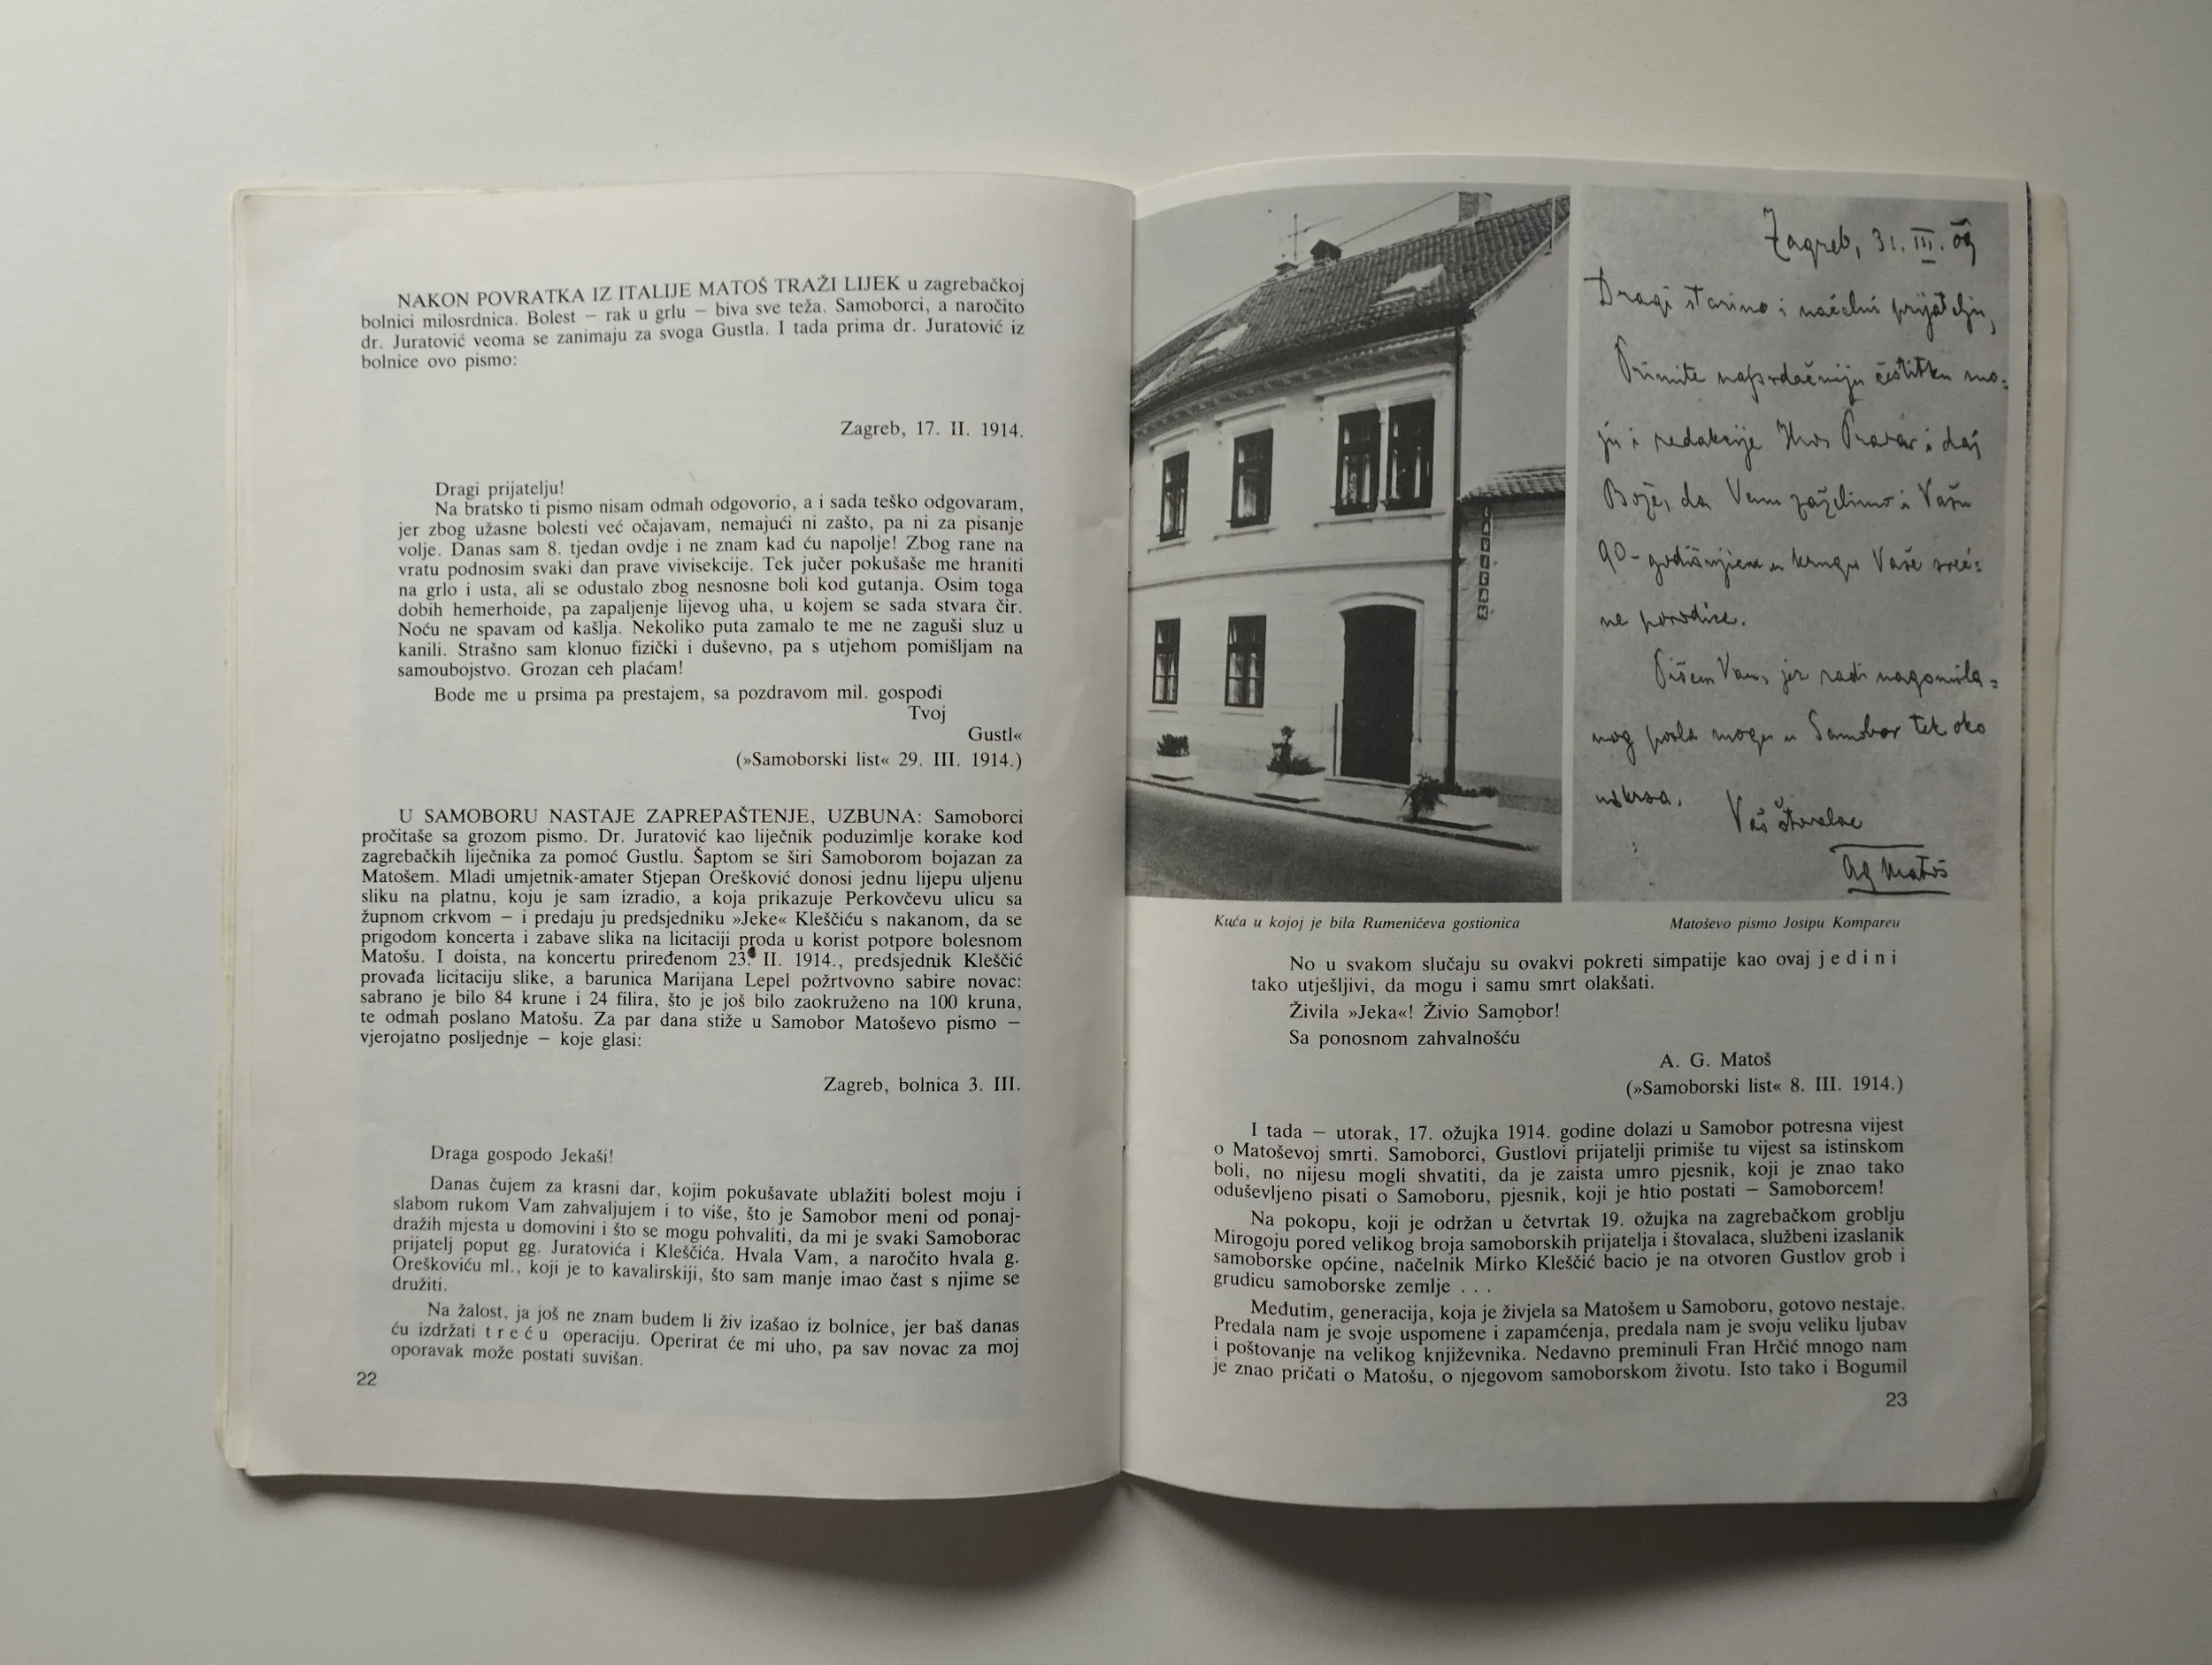 NAKON POVRATKA IZ ITALIJE MATOŠ TRAŽI LIJEK u zagrebačkoj
bolnici milosrdnica. Bolest — rak u grlu — biva sve teža. Samoborci, a naročito
dr. Juratović veoma se zanimaju za svoga Gustla. I tada prima dr. Juratović iz
bolnice ovo pismo:
Zagreb, 17. II. 1914.
Dragi prijatelju!
Na bratsko ti pismo nisam odmah odgovorio, a i sada teško odgovaram,
jer zbog užasne bolesti već očajavam, nemajući ni zašto, pa ni za pisanje
volje. Danas sam 8. tjedan ovdje i ne znam kad ću napolje! Zbog rane na
vratu podnosim svaki dan prave vivisekcije. Tek jučer pokušaše me hraniti
na grlo i usta, ali se odustalo zbog nesnosne boli kod gutanja. Osim toga
dobih hemerhoide, pa zapaljenje lijevog uha, u kojem se sada stvara čir.
Noću ne spavam od kašlja. Nekoliko puta zamalo te me ne zaguši sluz u
kanili. Strašno sam klonuo fizički i duševno, pa s utjehom pomišljam na
samoubojstvo. Grozan ceh plaćam!
Bode me u prsima pa prestajem, sa pozdravom mil. gospođi
Tvoj
Gustl«
(»Samoborski list« 29. III. 1914.)
U SAMOBORU NASTAJE ZAPREPAŠTENJE, UZBUNA: Samoborci
pročitaše sa grozom pismo. Dr. Juratović kao liječnik poduzimlje korake kod
zagrebačkih liječnika za pomoć Gustlu. Šaptom se širi Samoborom bojazan za
Matošem. Mladi umjetnik-amater Stjepan Orešković donosi jednu lijepu uljenu
sliku na platnu, koju je sam izradio, a koja prikazuje Perkovčevu ulicu sa
župnom crkvom — i predaju ju predsjedniku »Jeke« Kleščiću s nakanom, da se
prigodom koncerta i zabave slika na licitaciji proda u korist potpore bolesnom
Matošu. I doista, na koncertu priređenom 23. II. 1914., predsjednik Kleščić
provađa licitaciju slike, a barunica Marijana Lepel požrtvovno sabire novac:
sabrano je bilo 84 krune i 24 filira, što je još bilo zaokruženo na 100 kruna,
te odmah poslano Matošu. Za par dana stiže u Samobor Matoševo pismo —
vjerojatno posljednje — koje glasi:
Zagreb, bolnica 3. III.
Draga gospodo Jekaši!
Danas čujem za krasni dar, kojim pokušavate ublažiti bolest moju i
slabom rukom Vam zahvaljujem i to više, što je Samobor meni od ponaj-
dražih mjesta u domovini i što se mogu pohvaliti, da mi je svaki Samoborac
prijatelj poput gg. Juratovića i Kleščića. Hvala Vam, a naročito hvala g.
Oreškoviću ml., koji je to kavalirskiji, što sam manje imao čast s njime se
družiti.
Na žalost, ja još ne znam budem li živ izašao iz bolnice, jer baš danas
ću izdržati t r e ć u operaciju. Operirat će mi uho, pa sav novac za moj
oporavak može postati suvišan.
22
Zagreb, 31. III. 09
Dragi starino i načelni prijatelju,
Primite najsrdačniju čestitku mo-
ju i redakcije Hrv. Prava i daj
Bože, da Vam zaželimo i Vašu
90-godišnjicu u krugu Vaše sreć-
ne porodice.
Pišem Vam, jer radi nagomila-
nog posla mogu u Samobor tek oko
uskrsa.
Vaš štovalac
AG Matoš
Kuća u kojoj je bila Rumenićeva gostionica
Matoševo pismo Josipu Kompareu
No u svakom slučaju su ovakvi pokreti simpatije kao ovaj j e d i n i
tako utješljivi, da mogu i samu smrt olakšati.
Živila »Jeka«! Živio Samobor!
Sa ponosnom zahvalnošću
A. G. Matoš
(»Samoborski list« 8. III. 1914.)
I tada — utorak, 17. ožujka 1914. godine dolazi u Samobor potresna vijest
o Matoševoj smrti. Samoborci, Gustlovi prijatelji primiše tu vijest sa istinskom
boli, no nijesu mogli shvatiti, da je zaista umro pjesnik, koji je znao tako
oduševljeno pisati o Samoboru, pjesnik, koji je htio postati — Samoborcem!
Na pokopu, koji je održan u četvrtak 19. ožujka na zagrebačkom groblju
Mirogoju pored velikog broja samoborskih prijatelja i štovalaca, službeni izaslanik
samoborske općine, načelnik Mirko Kleščić bacio je na otvoren Gustlov grob i
grudicu samoborske zemlje . . .
Međutim, generacija, koja je živjela sa Matošem u Samoboru, gotovo nestaje.
Predala nam je svoje uspomene i zapamćenja, predala nam je svoju veliku ljubav
i poštovanje na velikog književnika. Nedavno preminuli Fran Hrčić mnogo nam
je znao pričati o Matošu, o njegovom samoborskom životu. Isto tako i Bogumil
23